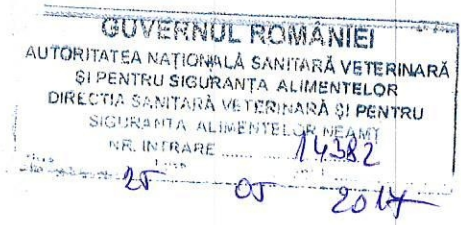 GUVERNUL ROMÂNIEI
AUTORITATEA NAȚIONALĂ SANITARĂ VETERINARĂ
ȘI PENTRU SIGURANȚA ALIMENTELOR
DIRECȚIA SANITARĂ VETERINARĂ ȘI PENTRU
SIGURANȚA ALIMENTELOR NEAMȚ
NR. INTRARE 14382
25 05 2017